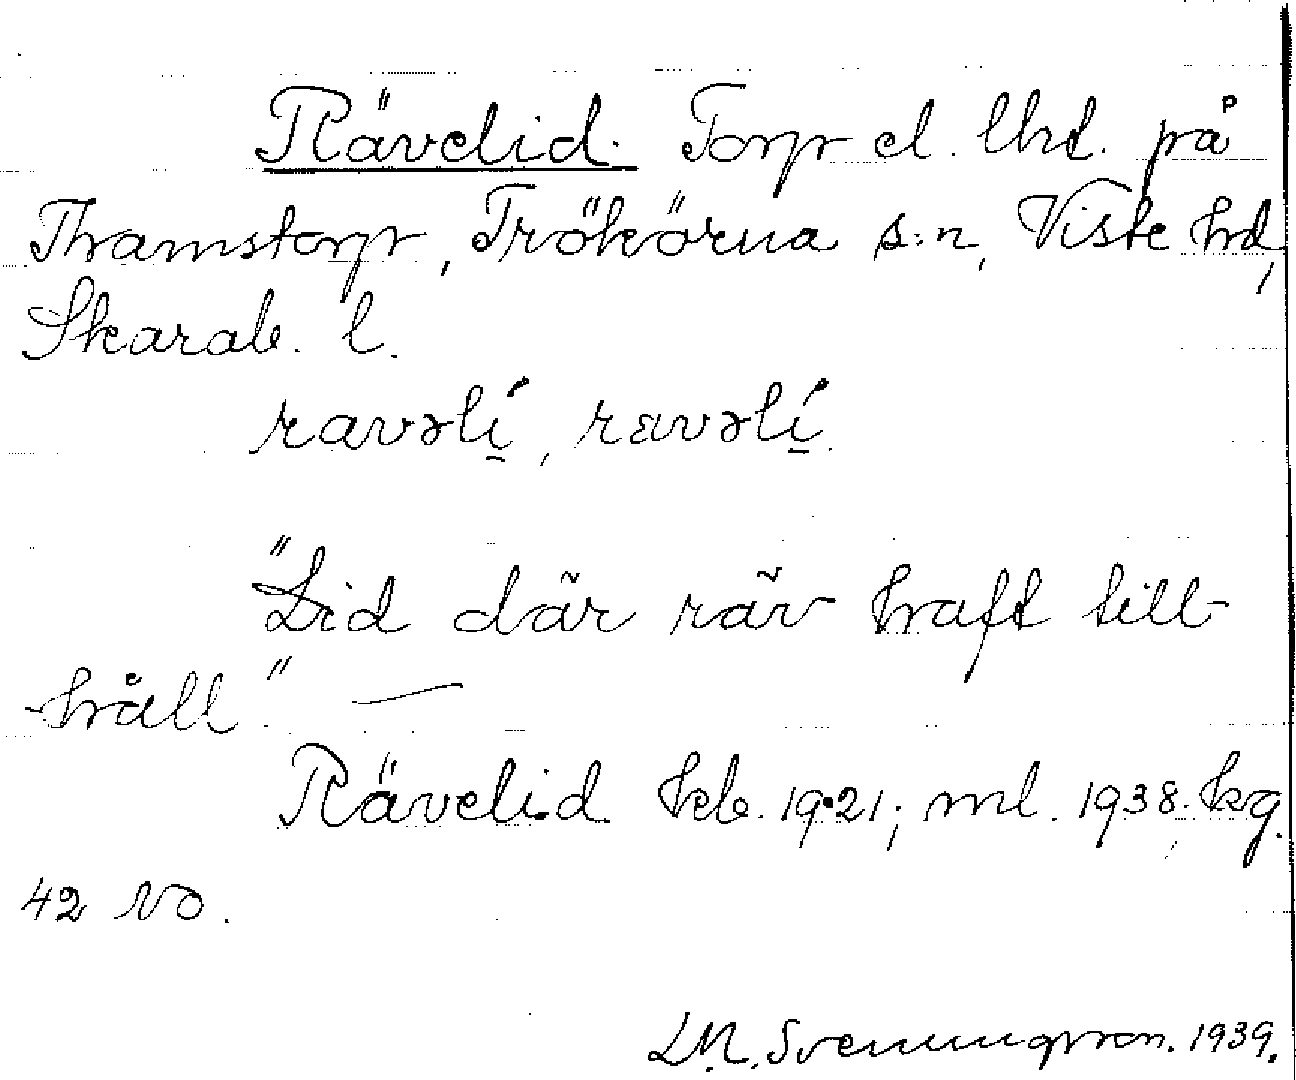 Rävelid. Torp el. lhd. på
Thramstorp, Trökörna s:n, Viste hd,
Skarab. l.
ravəlí̱, rävəlí̱.
"Lid där räv haft till-
-håll." —
Rävelid keb. 1921; ml. 1938; kg.
42 NO.
L.M. Svenungsson. 1939.